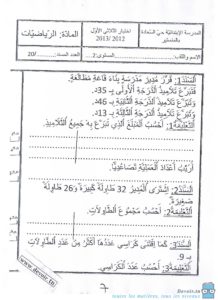 المدرسة الإبتدائية حيّ السّعادة
بالمنستير
اختبار الثلاثي الأوّل
2012 /2013
المادّة: الرياضيّات
الاسم واللقب:
المستوى: 2
العدد المسند: /20
السّند1: قرّر مدير مدرسة بناء قاعة مطالعة.
فتبرّع تلاميذ الدّرجة الأولى بـ 35د
وتبرّع تلاميذ الدّرجة الثّانية بـ 46د
وتبرّع تلاميذ الدّرجة الثّالثة بـ 13د.
التّعليمة1: أحسب المبلغ الّذي تبرّع به جميع التّلاميذ.
أرتّب أعداد العمليّة تصاعديّا.
السّند2: اشترى المدير 32 طاولة كبيرة و26 طاولة
صغيرة.
التّعليمة2: أحسب مجموع الطّاولات.
السّند3: كما اقتنى كراسي عددها أكثر من عدد الطّاولات
بـ 9
التّعليمة3: أحسب عدد الكراسي.
www.devoir.tn
7
Devoir.tn
toutes les matières, tous les niveaux